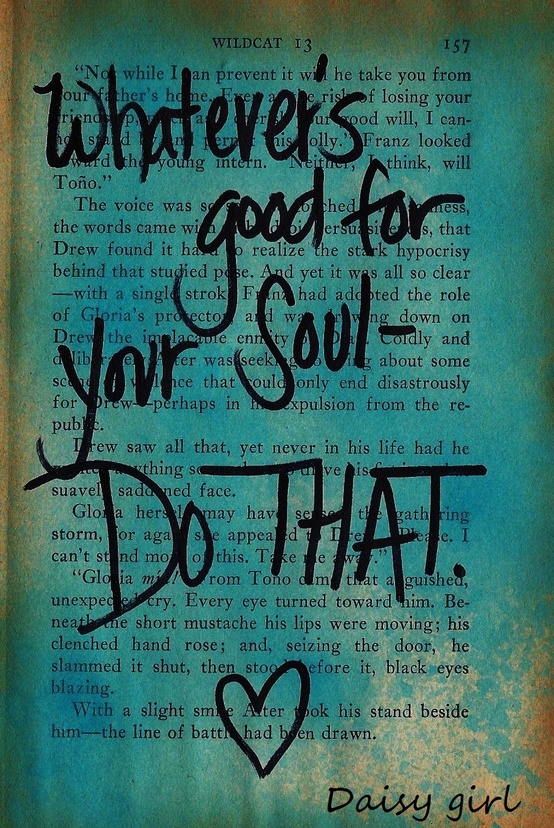 WILDCAT 13 157
Whatever's
good for
your Soul-
DO THAT.
"No, while I can prevent it will he take you from
your father's home. Even at the risk of losing your
good will, I can-
Franz looked
toward the young intern. "Neither, I think, will
Toño."
The voice was so
the words came with that
Drew found it hard to realize the stark hypocrisy
behind that studied pose. And yet it was all so clear
—with a single stroke Franz had adopted the role
of Gloria's protector and was drawing down on
Drew the implacable enmity of Coldly and
deliberately After was seeking to bring about some
scene of violence that could only end disastrously
for Drew—perhaps in his expulsion from the re-
public.
Drew saw all that, yet never in his life had he
wanted anything so
suavely saddened face.
Gloria herself may have sensed the gathering
storm, for again she appealed to Drew. "Please. I
can't stand more of this. Take me away."
"Gloria mia!" From Toño came that anguished,
unexpected cry. Every eye turned toward him. Be-
neath the short mustache his lips were moving; his
clenched hand rose; and, seizing the door, he
slammed it shut, then stood before it, black eyes
blazing.
With a slight smile After took his stand beside
him—the line of battle had been drawn.
Daisy girl